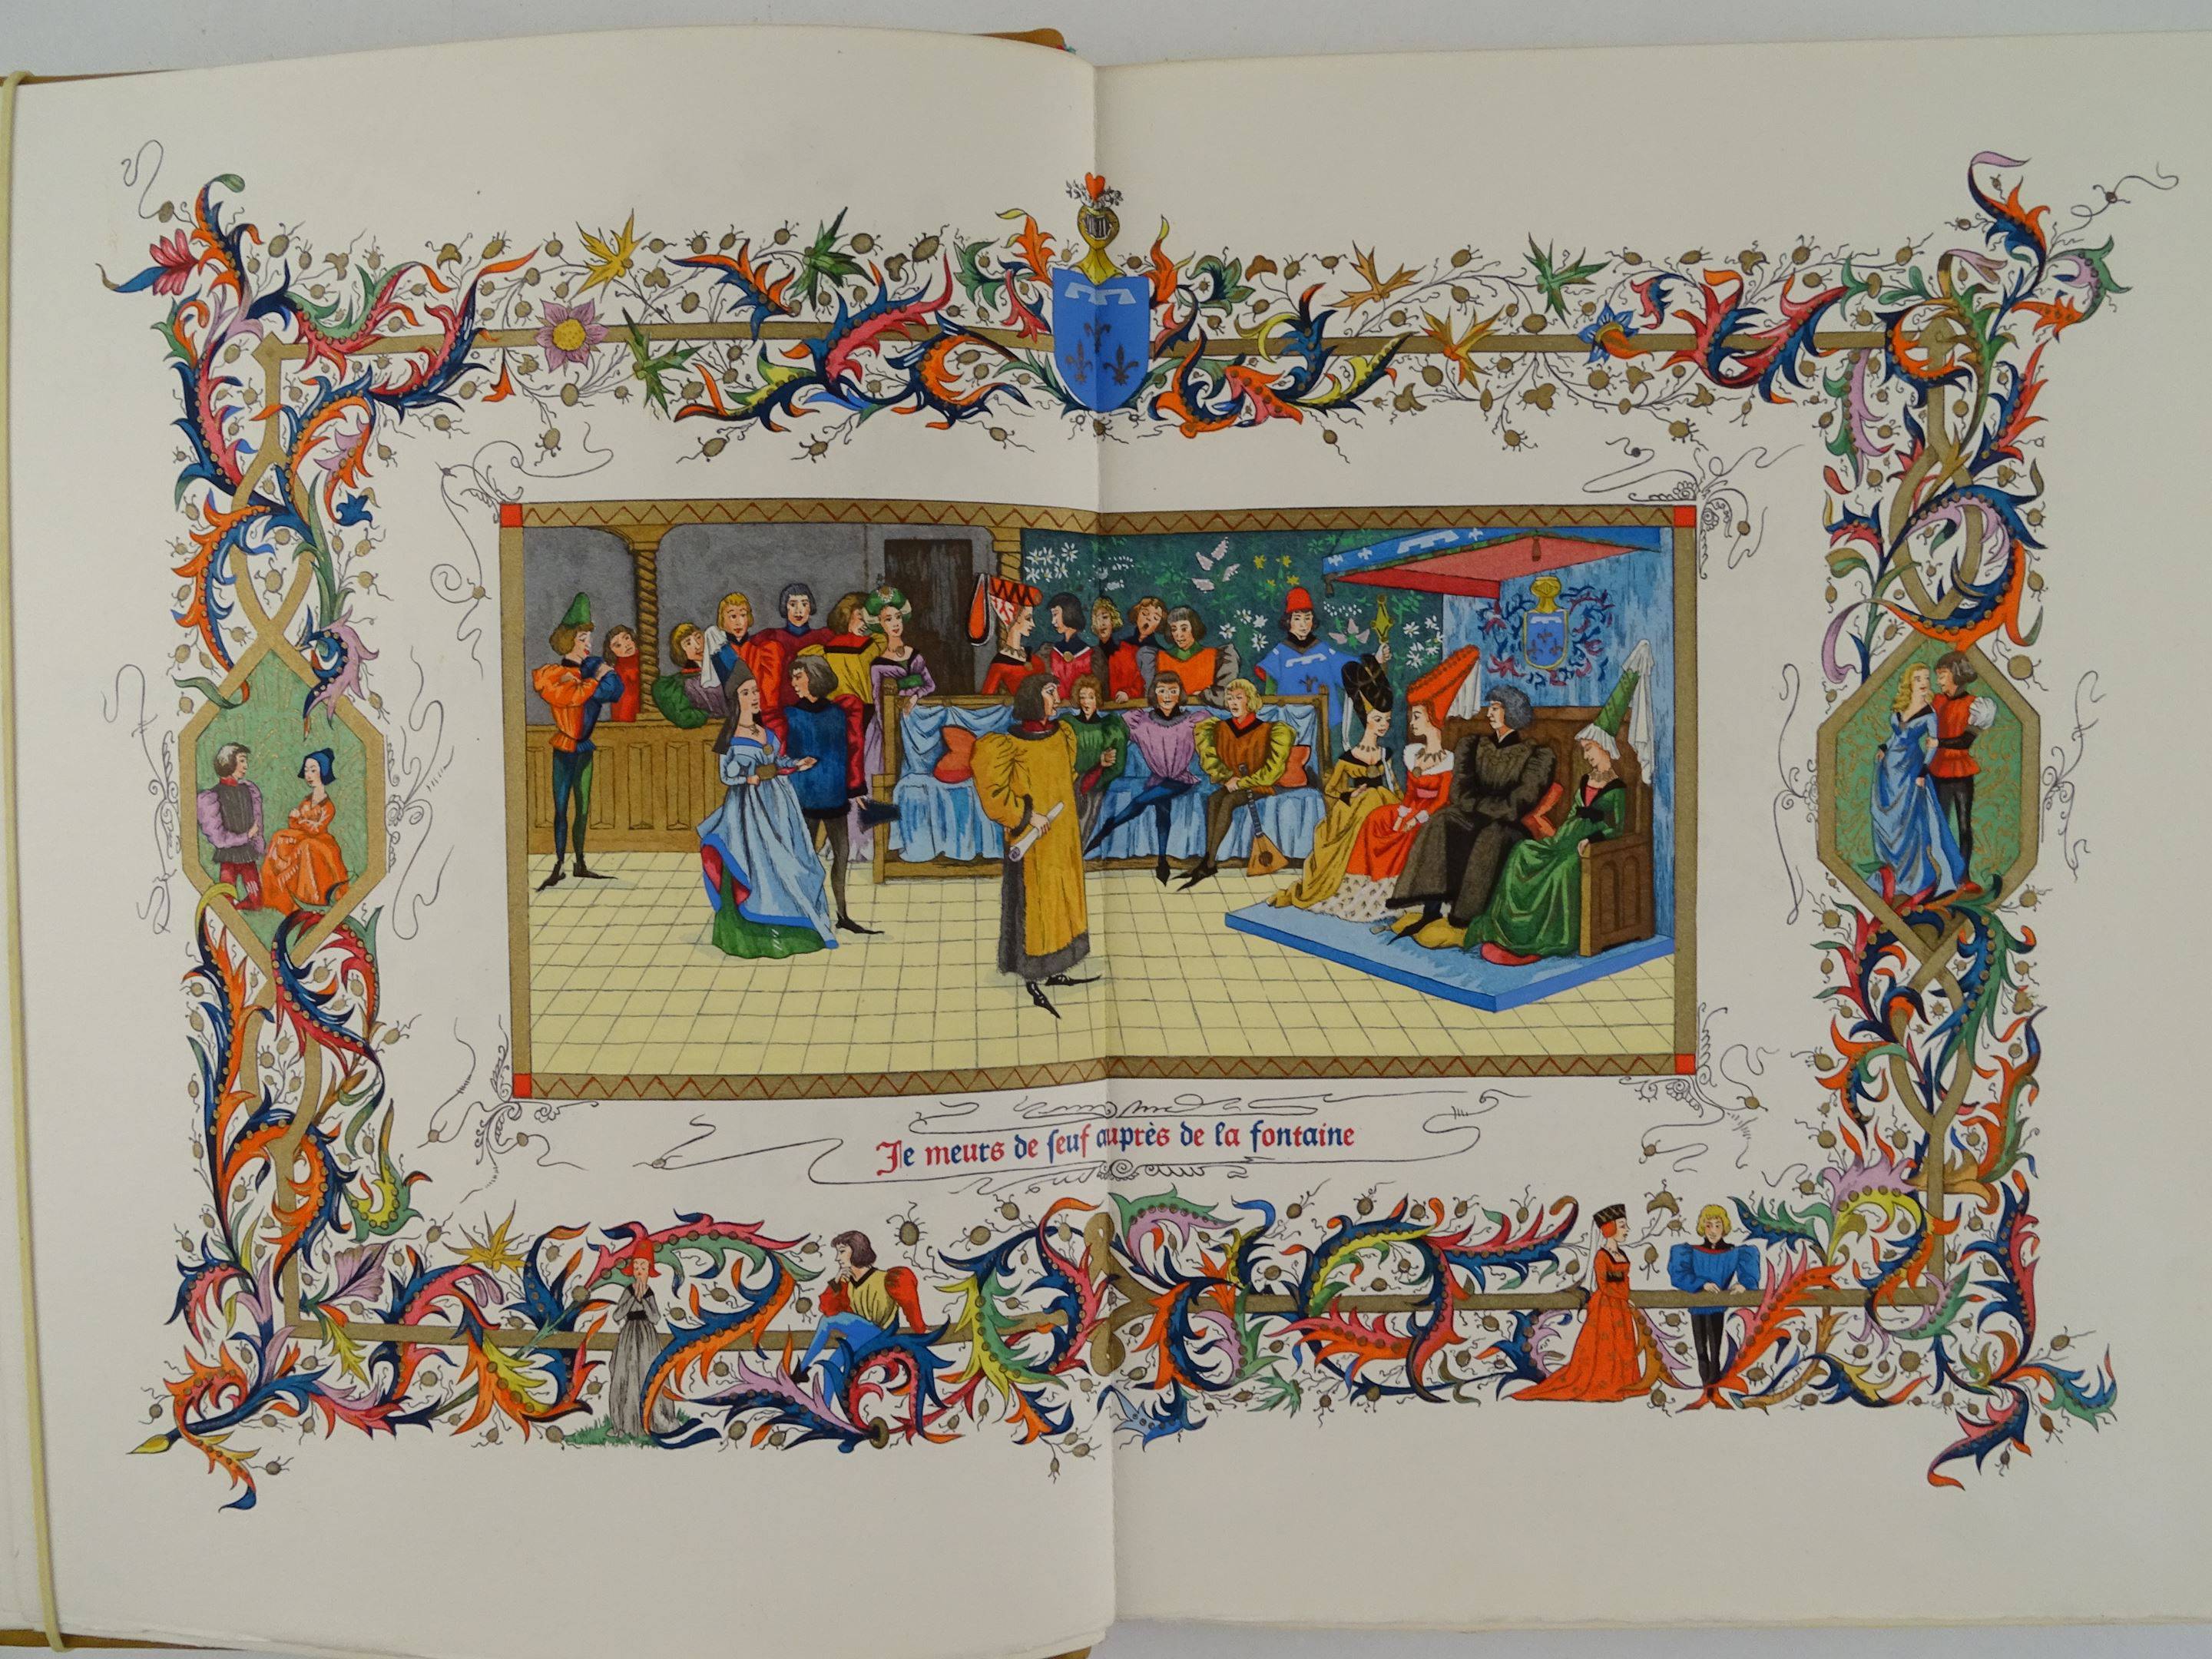 Je meurs de seuf auprès de la fontaine